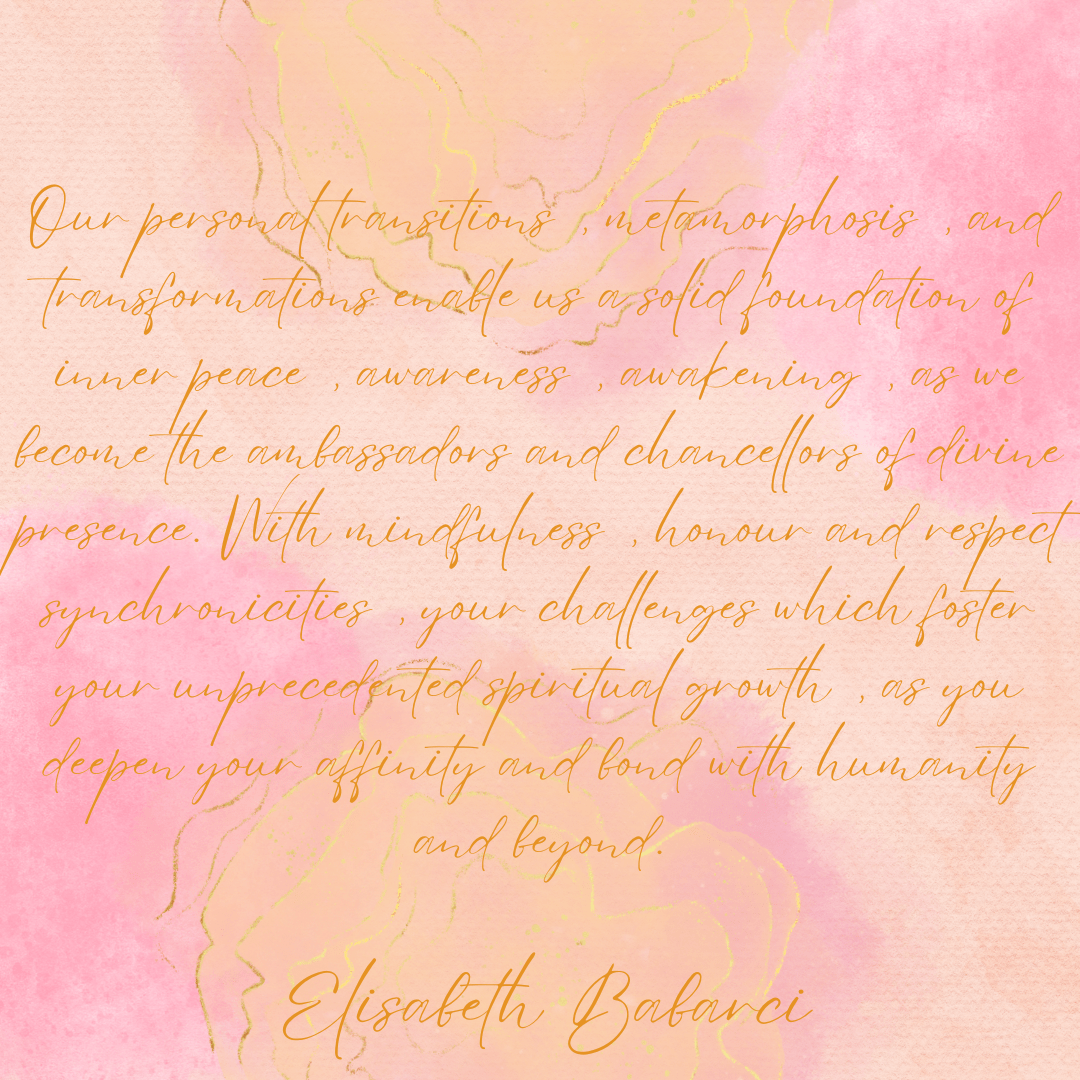 Our personal transitions , metamorphosis , and
transformations enable us a solid foundation of
inner peace , awareness , awakening , as we
become the ambassadors and chancellors of divine
presence. With mindfulness , honour and respect
synchronicities , your challenges which foster
your unprecedented spiritual growth , as you
deepen your affinity and bond with humanity
and beyond.
Elisabeth Babarci